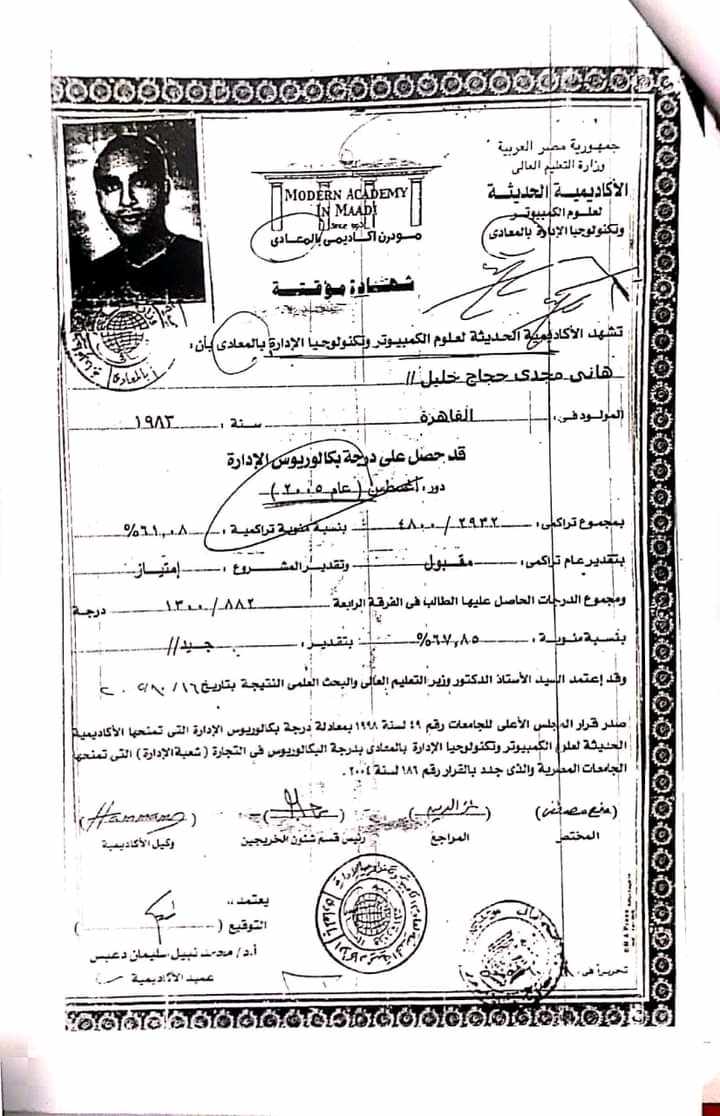 جمهورية مصر العربية
وزارة التعليم العالى
الأكاديمية الحديثة
لعلوم الكمبيوتر
وتكنولوجيا الإدارة بالمعادى
MODERN ACADEMY
IN MAADI
مودرن أكاديمى بالمعادى
شهادة مؤقتة
تشهد الأكاديمية الحديثة لعلوم الكمبيوتر وتكنولوجيا الإدارة بالمعادى بأن :
هانى مجدى حجاج خليل //
المولود فى : القاهرة سنة : ١٩٨٣
قد حصل على درجة بكالوريوس الإدارة
دور : أغسطس ( عام ٢٠٠٥ )
بمجموع تراكمى : ٢٩٣٢ / ٤٨٠٠ بنسبة مئوية تراكمية : ٦١,٠٨%
بتقدير عام تراكمى : مقبول وتقدير المشروع : إمتياز
ومجموع الدرجات الحاصل عليها الطالب فى الفرقة الرابعة ٨٨٢ / ١٣٠٠ درجة
بنسبة مئوية : ٦٧,٨٥% بتقدير : جيد //
وقد إعتمد السيد الأستاذ الدكتور وزير التعليم العالى والبحث العلمى النتيجة بتاريخ
صدر قرار المجلس الأعلى للجامعات رقم ٤٩ لسنة ١٩٩٨ بمعادلة درجة بكالوريوس الإدارة التى تمنحها الأكاديمية
الحديثة لعلوم الكمبيوتر وتكنولوجيا الإدارة بالمعادى بدرجة البكالوريوس فى التجارة ( شعبة الإدارة ) التى تمنحها
الجامعات المصرية والذى جدد بالقرار رقم ١٨٦ لسنة ٢٠٠٤ .
المختص المراجع رئيس قسم شئون الخريجين وكيل الأكاديمية
يعتمد ،،
التوقيع ( )
أ.د/ محمد نبيل سليمان دعبس
عميد الأكاديمية
تحريرا فى
بالمعادى